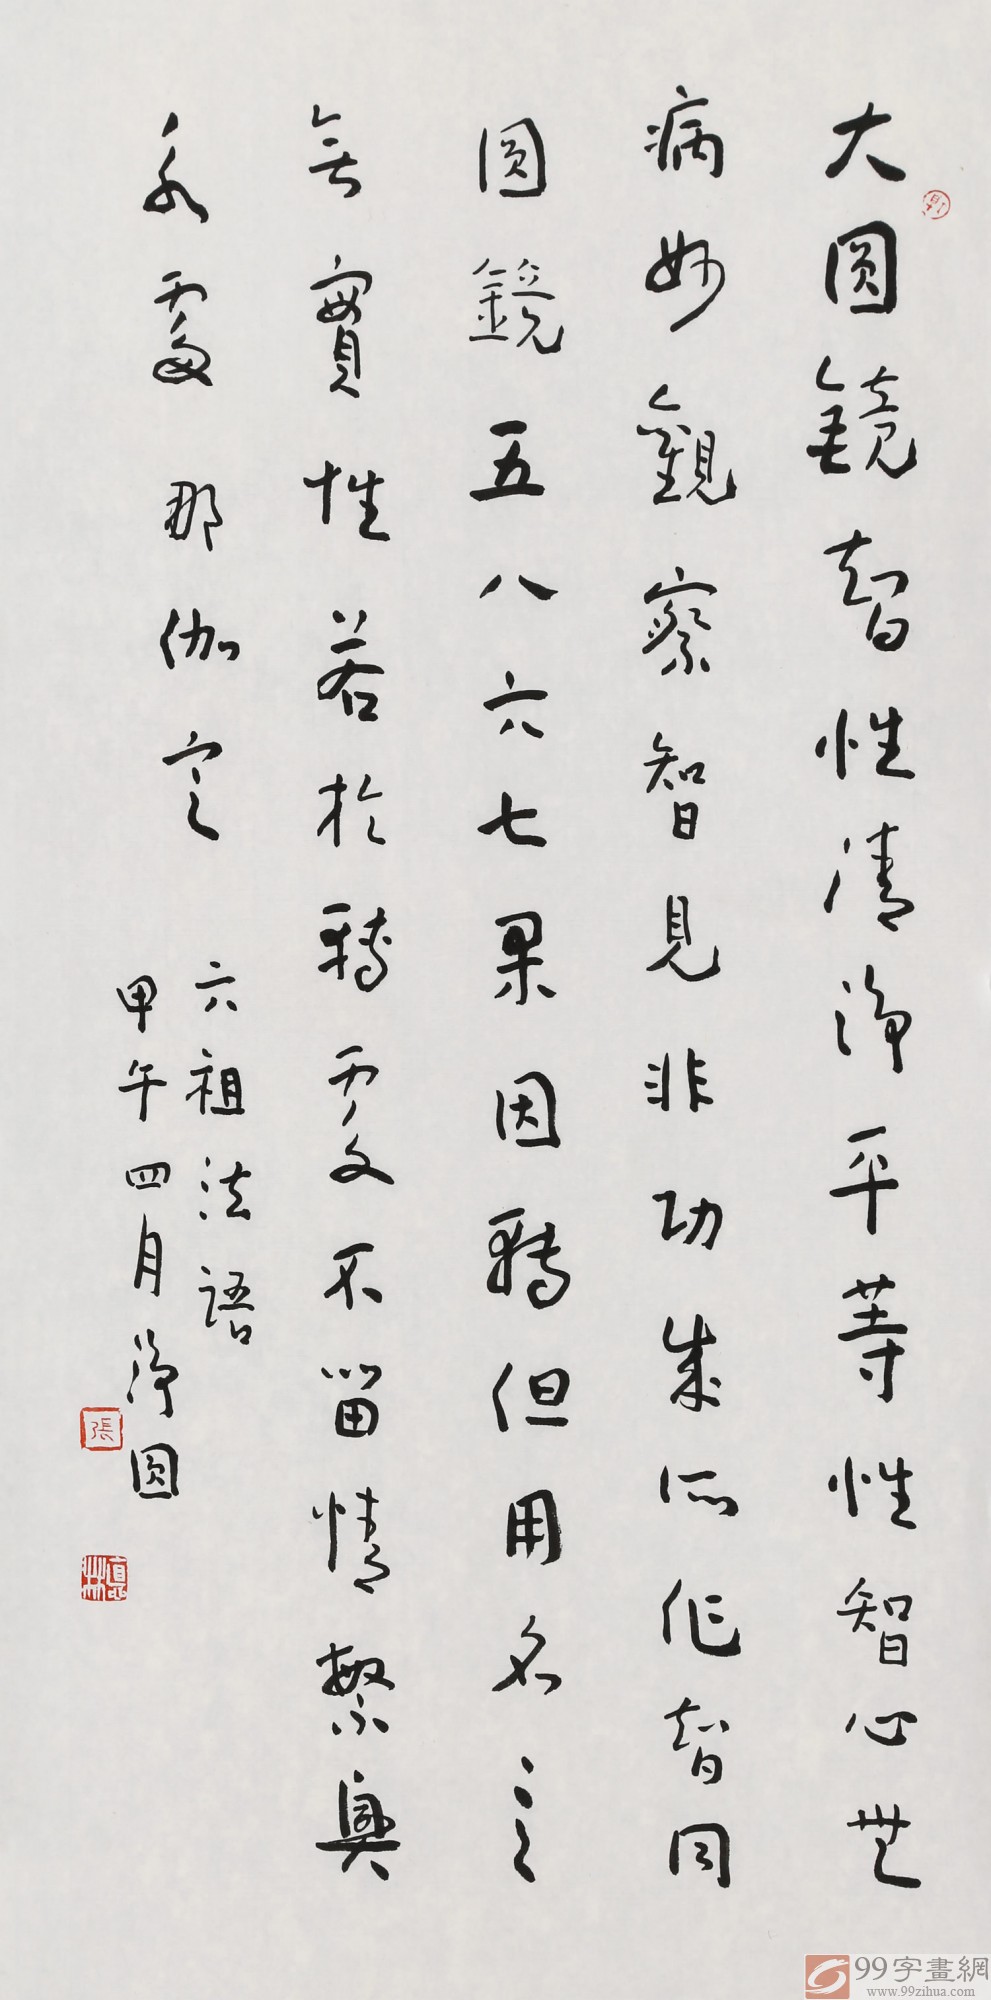 大圓鏡智性清淨平等性智心無
病妙觀察智見非功成所作智同
圓鏡五八六七果因轉但用名言
無實性若於轉處不留情繁興
永處那伽定
六祖法語
甲午四月淨圓
張
99字畫網
www.99zihua.com